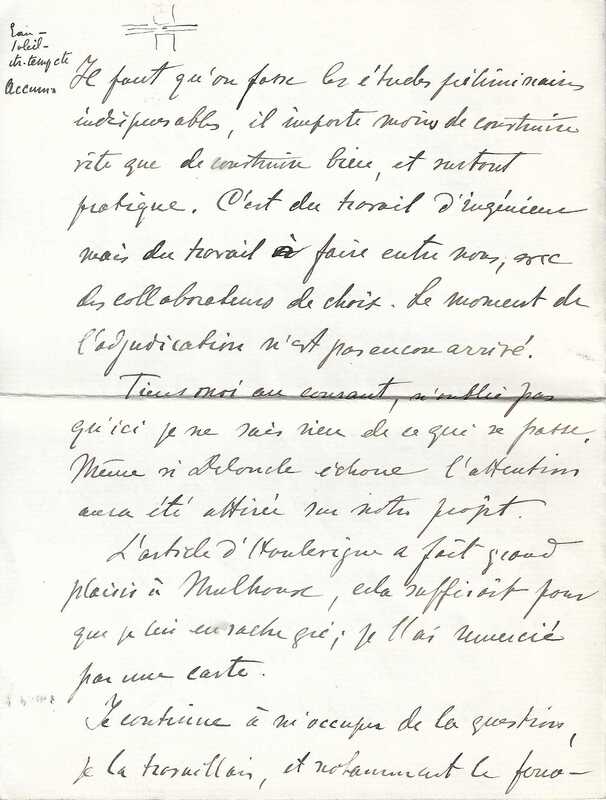 Eau -
soleil -
tempête
Accum
Il faut qu'on fasse les études préliminaires
indispensables, il importe moins de construire
vite que de construire bien, et surtout
pratique. C'est du travail d'ingénieur
mais du travail à faire entre nous, avec
des collaborateurs de choix. Le moment de
l'adjudication n'est pas encore arrivé.
Tiens moi au courant, n'oublie pas
qu'ici je ne sais rien de ce que se passe.
Même si Deloncle échoue l'attention
aura été attirée sur notre projet.
L'article d'Houlevigue a fait grand
plaisir à Mulhouse, cela suffirait pour
que je lui en sache gré ; je l'ai remercié
par une carte.
Je continue à m'occuper de la question,
je la travaillais, et notamment le fona-